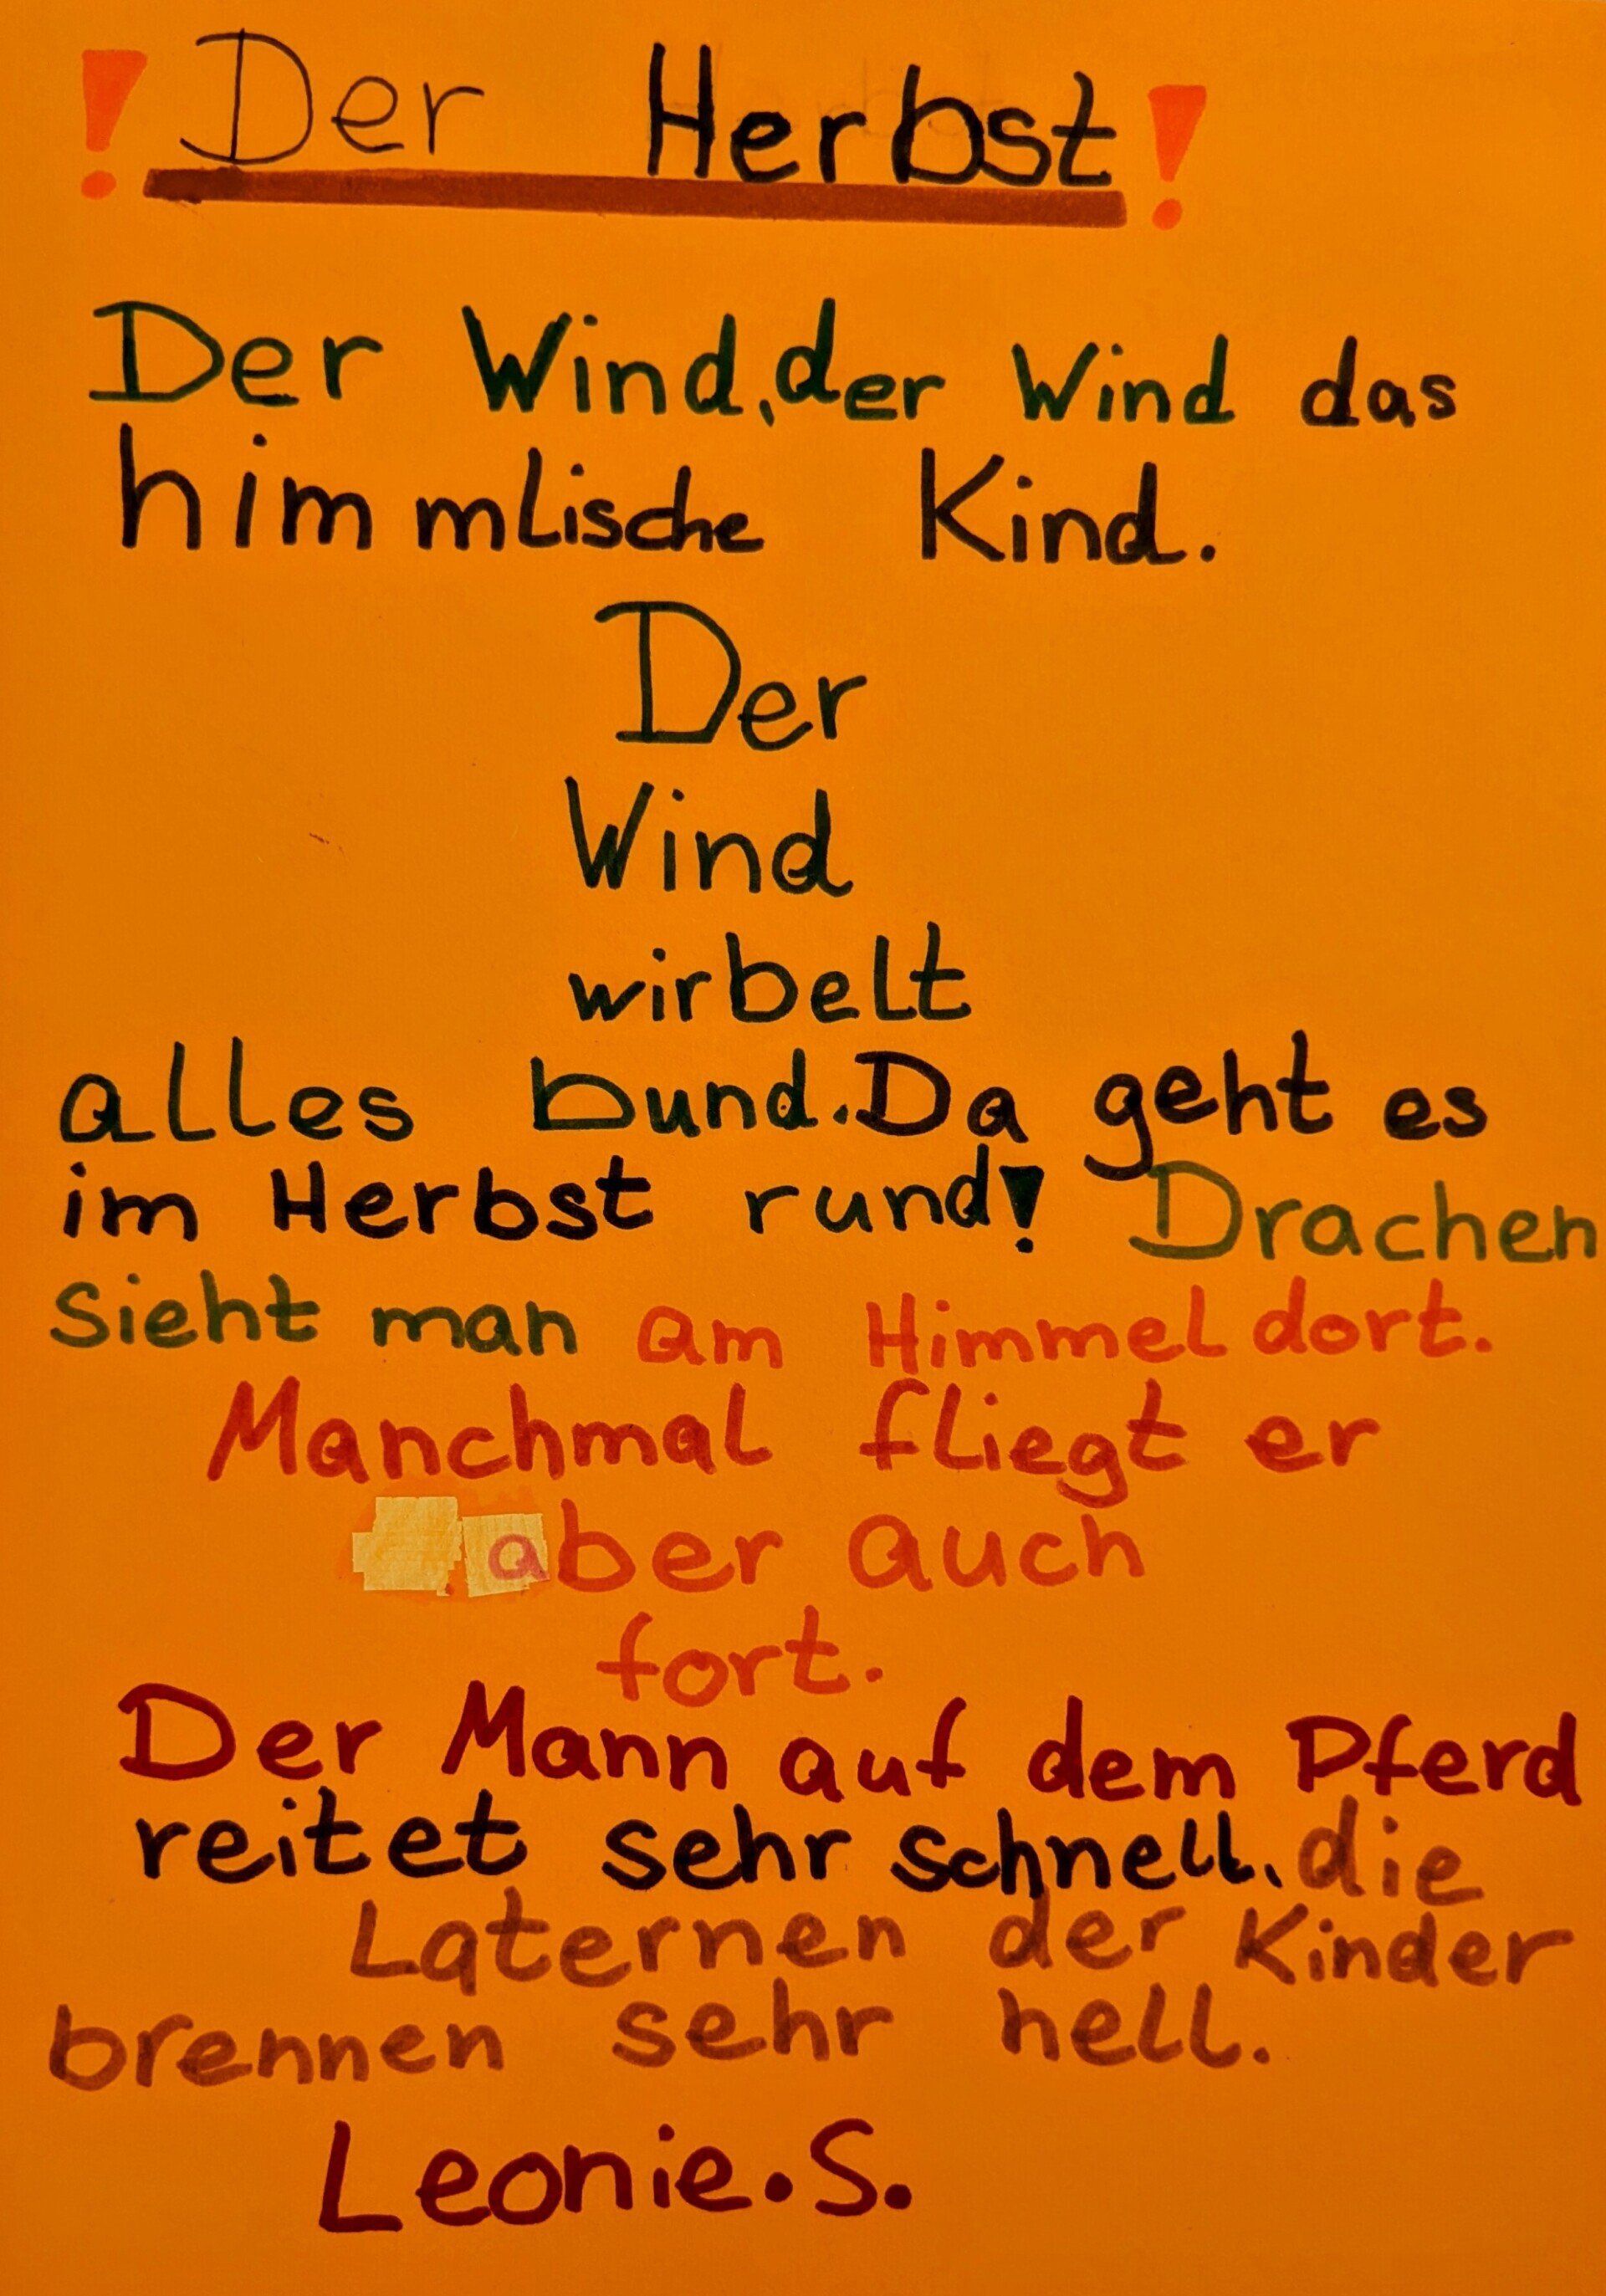 ! Der Herbst!
Der Wind, der Wind das
himmlische Kind.
Der
Wind
wirbelt
alles bund. Da geht es
im Herbst rund! Drachen
sieht man am Himmel dort.
Manchmal fliegt er
aber auch
fort.
Der Mann auf dem Pferd
reitet sehr schnell, die
Laternen der Kinder
brennen sehr hell.
Leonie. S.